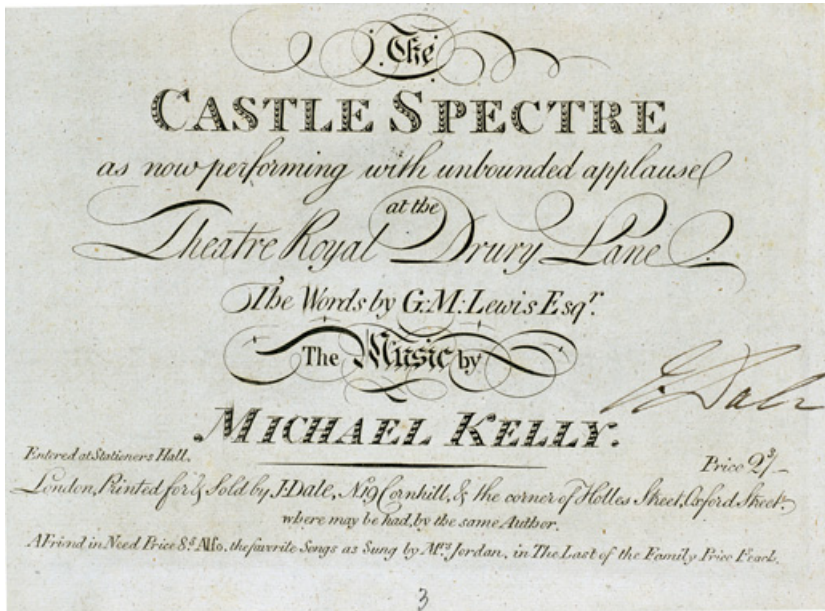 The
CASTLE SPECTRE
as now performing with unbounded applause
at the
Theatre Royal Drury Lane.
The Words by G:M:Lewis Esqr.
The Music by
MICHAEL KELLY.
J. Dale
Entered at Stationers Hall. Price 2/-
London, Printed for & Sold by J. Dale, No 19 Cornhill, & the corner of Holles Street, Oxford Street.
where may be had, by the same Author.
A Friend in Need Price 8s. Also, the favorite Songs as Sung by Mrs Jordan, in The Last of the Family Price Each.
3